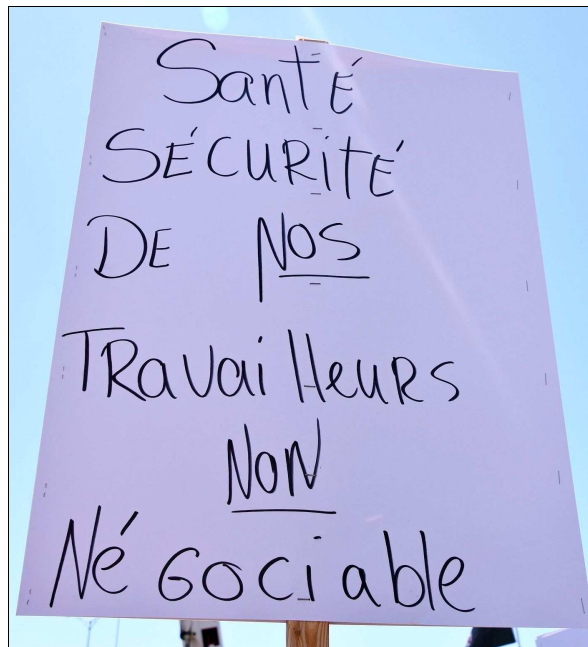 Santé
SÉCURiTÉ
DE NOS
TRavaiHeuRS
NoN
Né Gociable